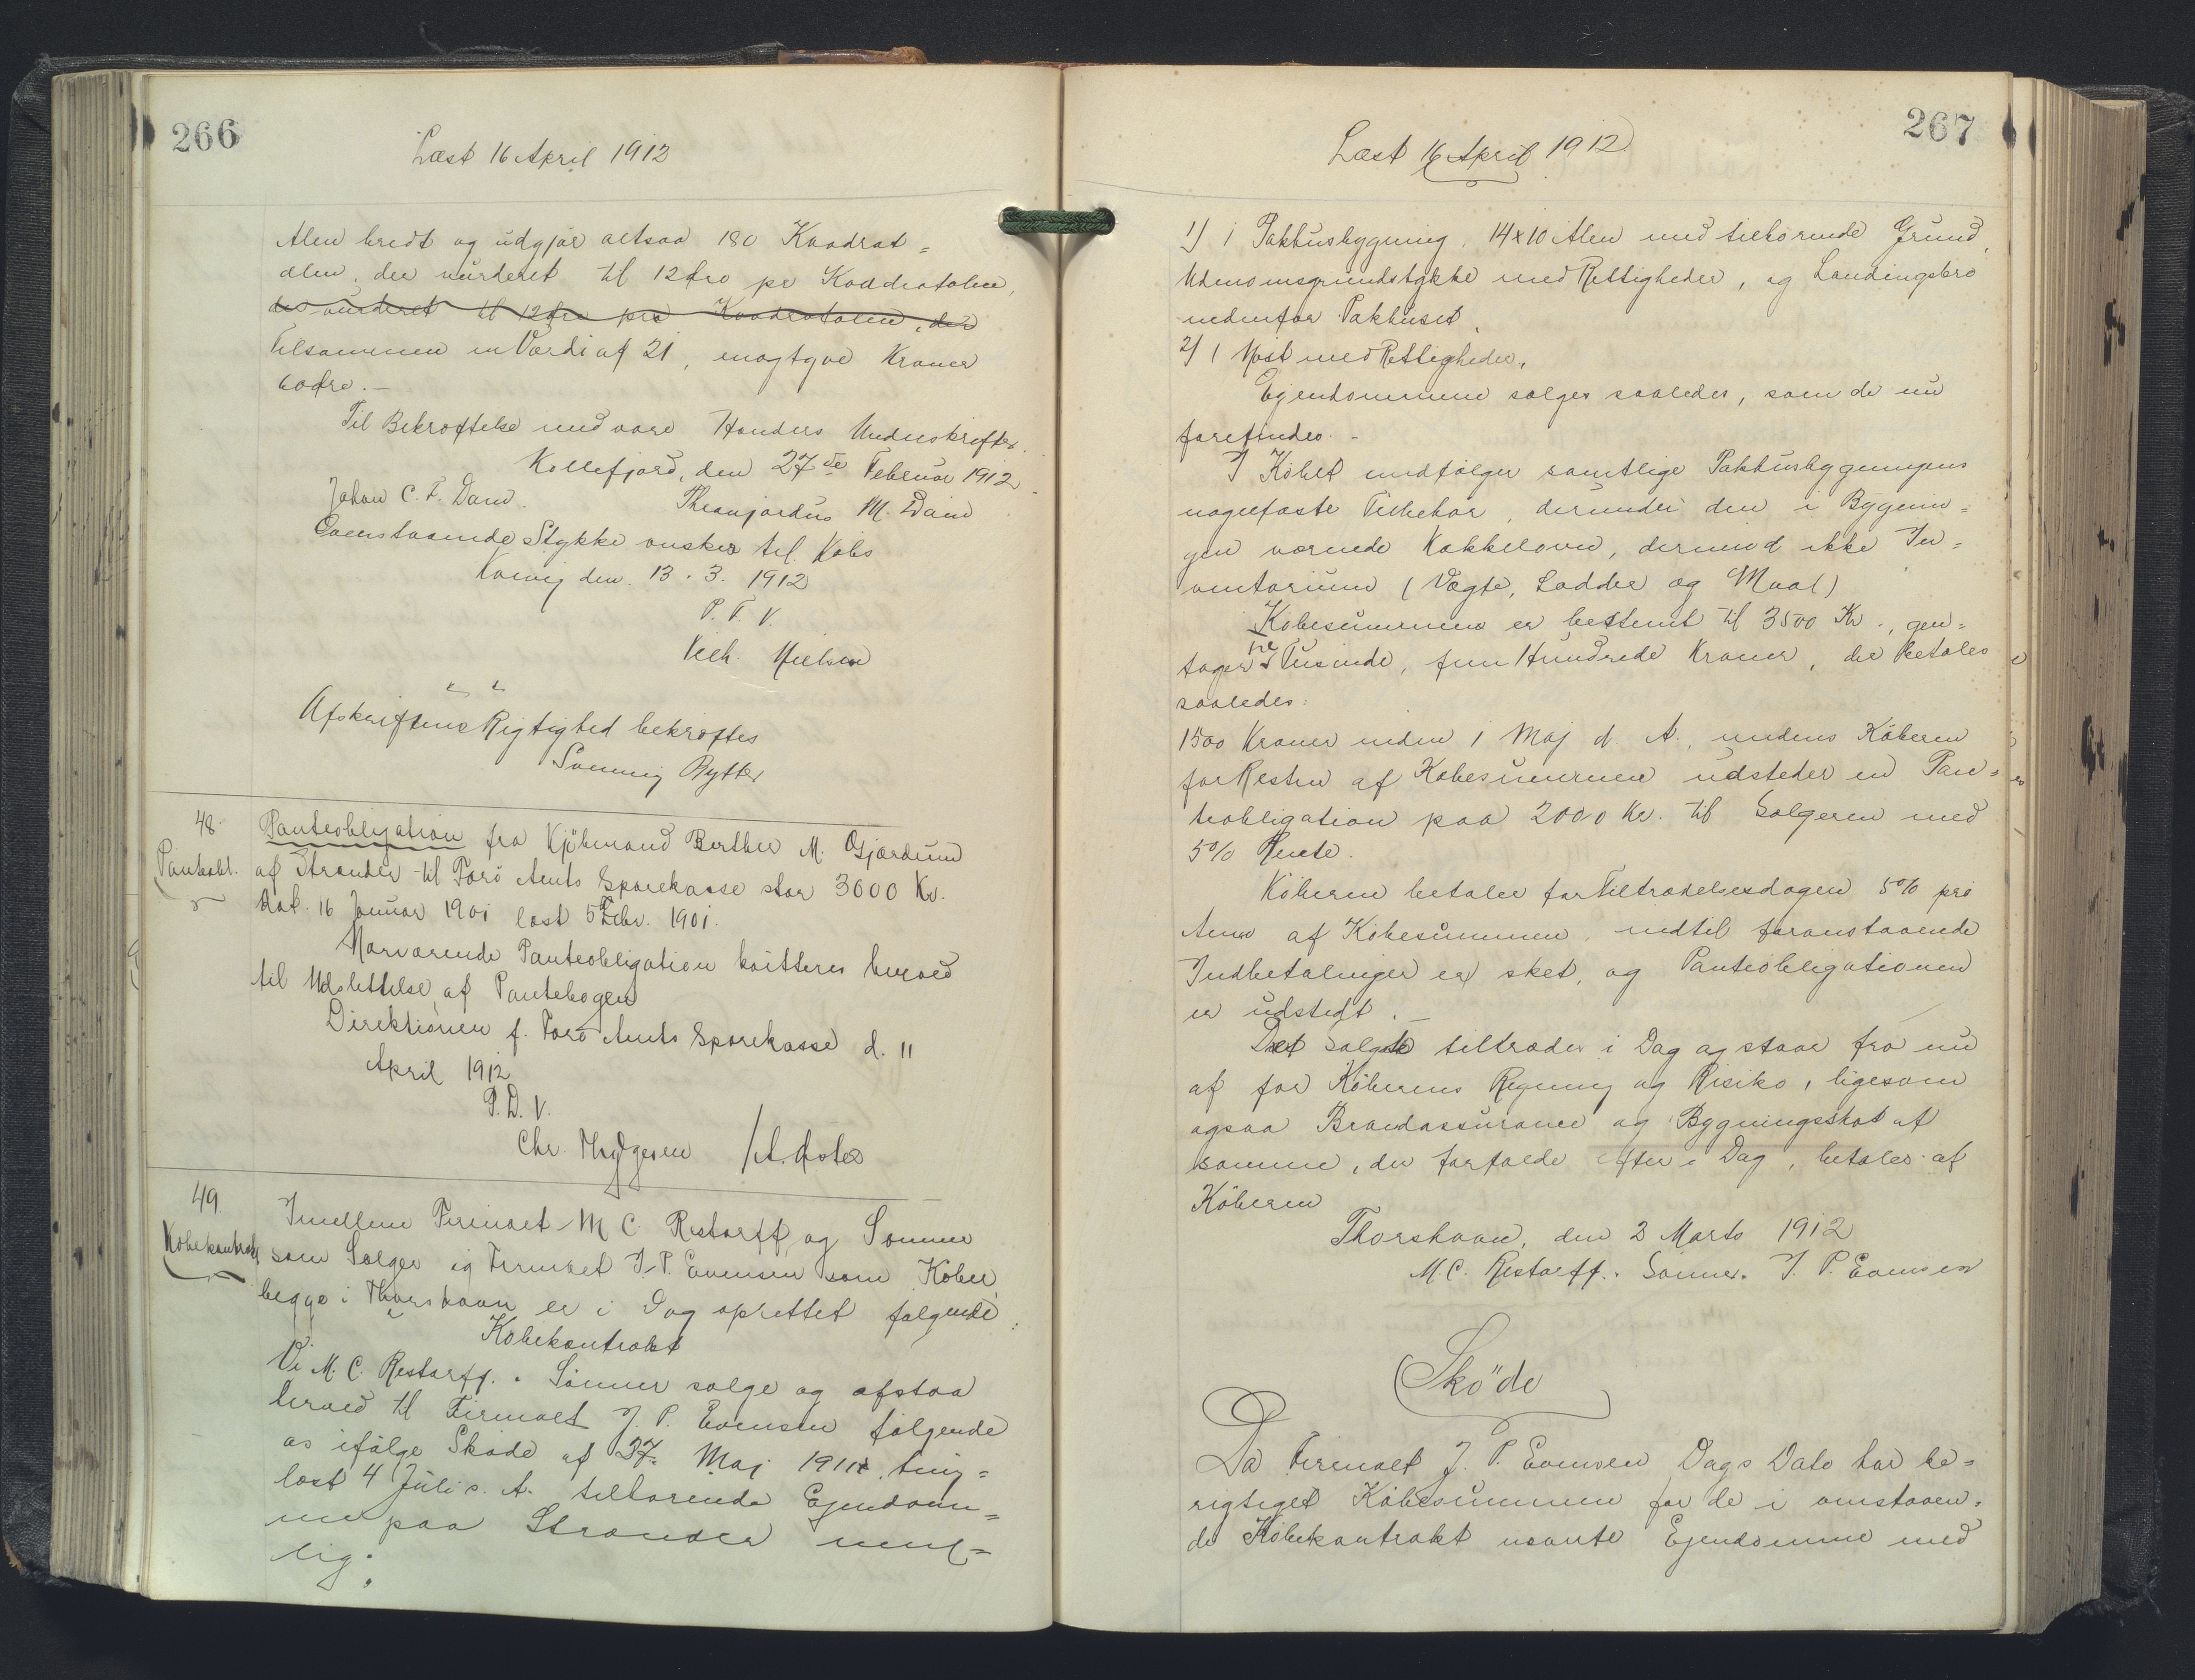 266
Læst 16 April 1912
Alen bredt og udgjør altsaa 180 Kvadrat=
alen, der vurderet til 12 Øre pr Kvadratalen,
der vurderet til 12 Øre pro Kvadratalen, der
tilsammen en Værdi af 21, enogtyve Kroner
60 Øre.-
Til Bekræftelse med vore Hænders Underskrifter.
Kollefjord, den 27de Februar 1912
Johan C. F. Dam. M. Dam
Ovenstaaende Stykke ønskes til Købs
Kvivig den 13.3.1912
P. F. V.
Vilh. Nielsen
Afskriftens Rigtighed bekræftes
Rytter
48.
Panteobl.
Panteobligation fra Kjøbmand Berther M. Gjærdum
af Strænder til Færø Amts Sparekasse stor 3000 Kr.
dat. 16 Januar 1901 læst 5 Febr. 1901.
Nærværende Panteobligation kvitteres herved
til Udslettelse af Pantebogen
Direktionen f. Færø Amts Sparekasse d. 11
April 1912
P. D. V.
Chr.
49.
Købekontrakt
Imellem Firmaet M C. Restorff og Sønner
som Sælger og Firmaet J. P. Evensen som Køber,
begge i Thorshavn er i Dag oprettet følgende:
Købekontrakt
Vi M. C. Restorff & Sønner sælge og afstaa
herved til Firmaet J. P. Evensen følgende
os ifølge Skøde af 27. Maj 1911, ting=
læst 4 Juli s. A. tilhørende Ejendom=
me paa Strænder nem=
lig:
267
Læst 16 April 1912
1) 1 Pakhusbygning, 14x10 Alen med tilhørende Grund,
Udenomsgrundstykke med Rettigheder, og Landingsbro
nedenfor Pakhuset,
2) 1 Nøst med Rettigheder,
Ejendommene sælges saaledes, som de nu
forefindes.-
I Købet medfølger samtlige Pakhusbygningens
nagelfaste Tilbehør, derunder den i Bygnin=
gen værende Kakkelovn, derimod ikke In=
ventarium (Vægte, Lodder og Maal)
Købesummen er bestemt til 3500 Kr., gen=
tager tre Tusinde, fem Hundrede Kroner, der betales
saaledes:
1500 Kroner inden 1 Maj d. A., medens Køberen
for Resten af Købesummen udsteder en Pan=
teobligation paa 2000 Kr. til Sælgeren med
5% Rente.
Køberen betaler fra Tiltrædelsesdagen 5% pro
Anno af Købesummen, indtil foranstaaende
Indbetalinger er sket, og Panteobligationen
er udstedt.-
Det solgte tiltrædes i Dag og staar fra nu
af for Køberens Regning og Risiko, ligesom
ogsaa Brandassurance og Bygningsskat af
samme, der forfalde efter i Dag, betales af
Køberen
Thorshavn, den 2 Marts 1912
M C. Restorff & Sønner. J. P. Evensen
Sköde
Da Firmaet J. P. Evensen Dags Dato har be=
rigtiget Købesummen for de i omstaaen=
de Købekontrakt nævnte Ejendomme med